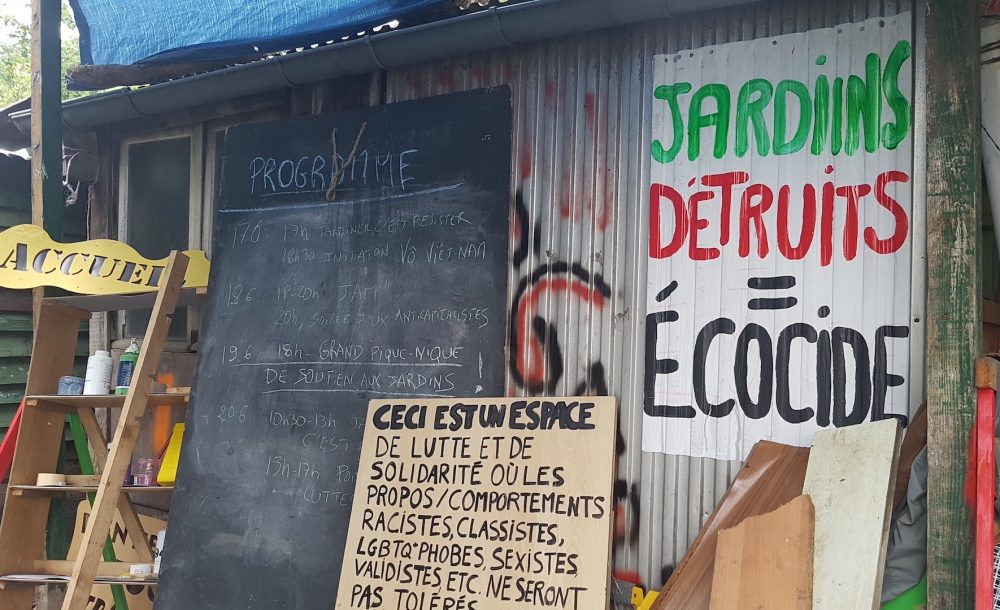 ACCUEIL
PROGRAMME
17.6 17h JARDINER, C'EST RESISTER
18h30 INITIATION VÔ VIET NAM
18.6 19-20h JAM
20h, SOIRÉE JEUX ANTICAPITALISTES
19.6 18h - GRAND PIQUE-NIQUE
DE SOUTIEN AUX JARDINS !
20.6 10h30-13h
C'EST
15h-17h
LUTTE
JARDIINS
DÉTRUITS
=
ÉCOCIDE
CECI EST UN ESPACE
DE LUTTE ET DE
SOLIDARITÉ OÙ LES
PROPOS/COMPORTEMENTS
RACISTES, CLASSISTES,
LGBTQ*PHOBES, SEXISTES,
VALIDISTES ETC. NE SERONT
PAS TOLÉRÉS